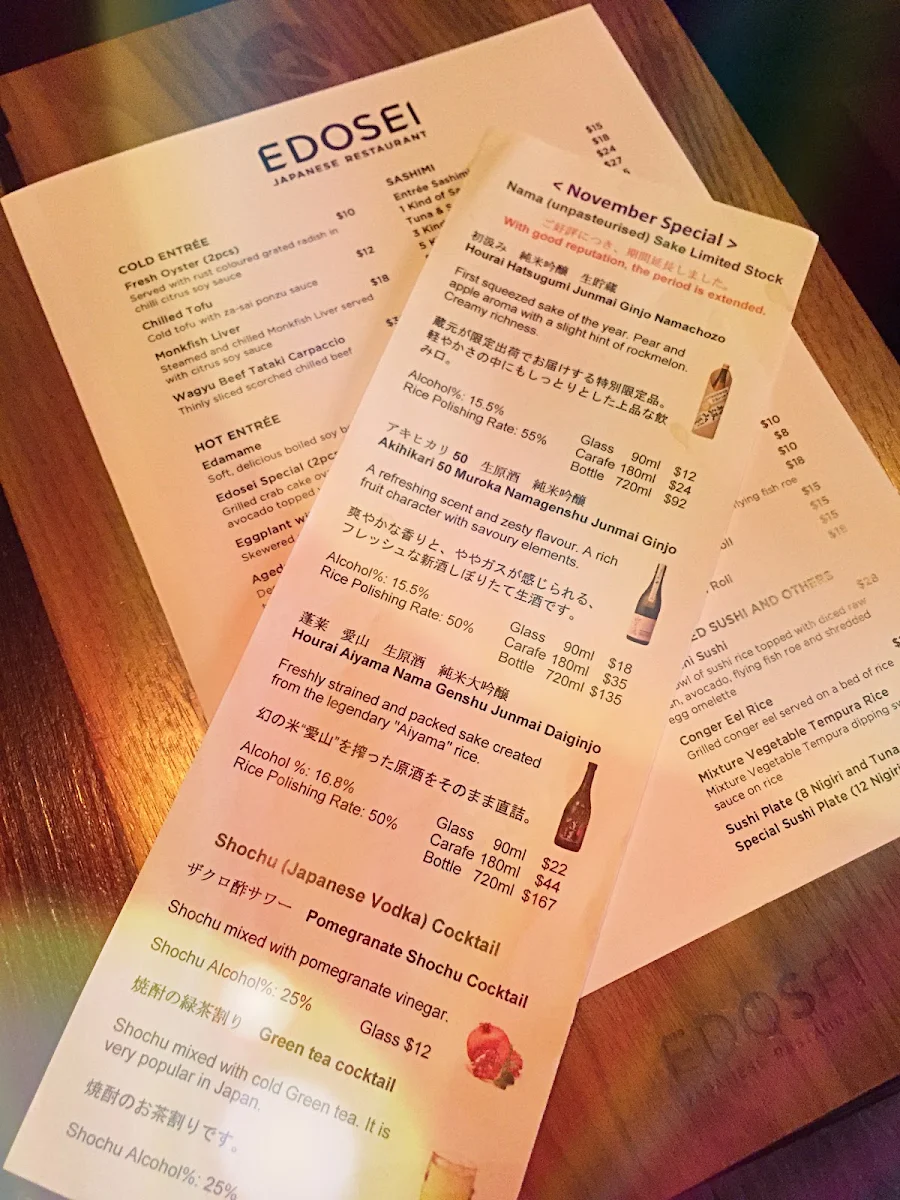 EDOSEI
JAPANESE RESTAURANT
COLD ENTRÉE
Fresh Oyster (2pcs) $10
Served with rust coloured grated radish in
chilli citrus soy sauce
Chilled Tofu $12
Cold tofu with za-sai ponzu sauce
Monkfish Liver $18
Steamed and chilled Monkfish Liver served
with citrus soy sauce
Wagyu Beef Tataki Carpaccio
Thinly sliced scorched chilled beef
HOT ENTRÉE
Edamame
Soft, delicious boiled soy
Edosei Special (2pcs
Grilled crab cake
avocado topped
Eggplant
Skewered
Aged
SASHIMI
Entrée Sashimi
1 Kind of
Tuna &
3
5
$15
$18
$24
$27
< November Special >
Nama (unpasteurised) Sake Limited Stock
ご好評につき、期間延長しました。
With good reputation, the period is extended.
初汲み 純米吟醸 生貯蔵
Hourai Hatsugumi Junmai Ginjo Namachozo
First squeezed sake of the year. Pear and
apple aroma with a slight hint of rockmelon.
Creamy richness.
蔵元が限定出荷でお届けする特別限定品。
軽やかさの中にもしっとりとした上品な飲
み口。
Alcohol%: 15.5%
Rice Polishing Rate: 55%
Glass 90ml $12
Carafe 180ml $24
Bottle 720ml $92
アキヒカリ 50 生原酒 純米吟醸
Akihikari 50 Muroka Namagenshu Junmai Ginjo
A refreshing scent and zesty flavour. A rich
fruit character with savoury elements.
爽やかな香りと、ややガスが感じられる、
フレッシュな新酒しぼりたて生酒です。
Alcohol%: 15.5%
Rice Polishing Rate: 50%
Glass 90ml $18
Carafe 180ml $35
Bottle 720ml $135
蓬莱 愛山 生原酒 純米大吟醸
Hourai Aiyama Nama Genshu Junmai Daiginjo
Freshly strained and packed sake created
from the legendary "Aiyama" rice.
幻の米“愛山”を搾った原酒をそのまま直詰。
Alcohol %: 16.8%
Rice Polishing Rate: 50%
Glass 90ml $22
Carafe 180ml $44
Bottle 720ml $167
Shochu (Japanese Vodka) Cocktail
ザクロ酢サワー Pomegranate Shochu Cocktail
Shochu mixed with pomegranate vinegar.
Shochu Alcohol%: 25%
Glass $12
焼酎の緑茶割り Green tea cocktail
Shochu mixed with cold Green tea. It is
very popular in Japan.
焼酎のお茶割りです。
Shochu Alcohol%: 25%
$10
$8
$10
$18
flying fish roe
$15
$15
$18
Roll
SUSHI AND OTHERS
Sushi $28
of sushi rice topped with diced raw
avocado, flying fish roe and shredded
egg omelette
Conger Eel Rice
Grilled conger eel served on a bed of rice
Mixture Vegetable Tempura Rice
Mixture Vegetable Tempura dipping
sauce on rice
Sushi Plate (8 Nigiri and Tuna
Special Sushi Plate (12 Nigiri
EDOSEI